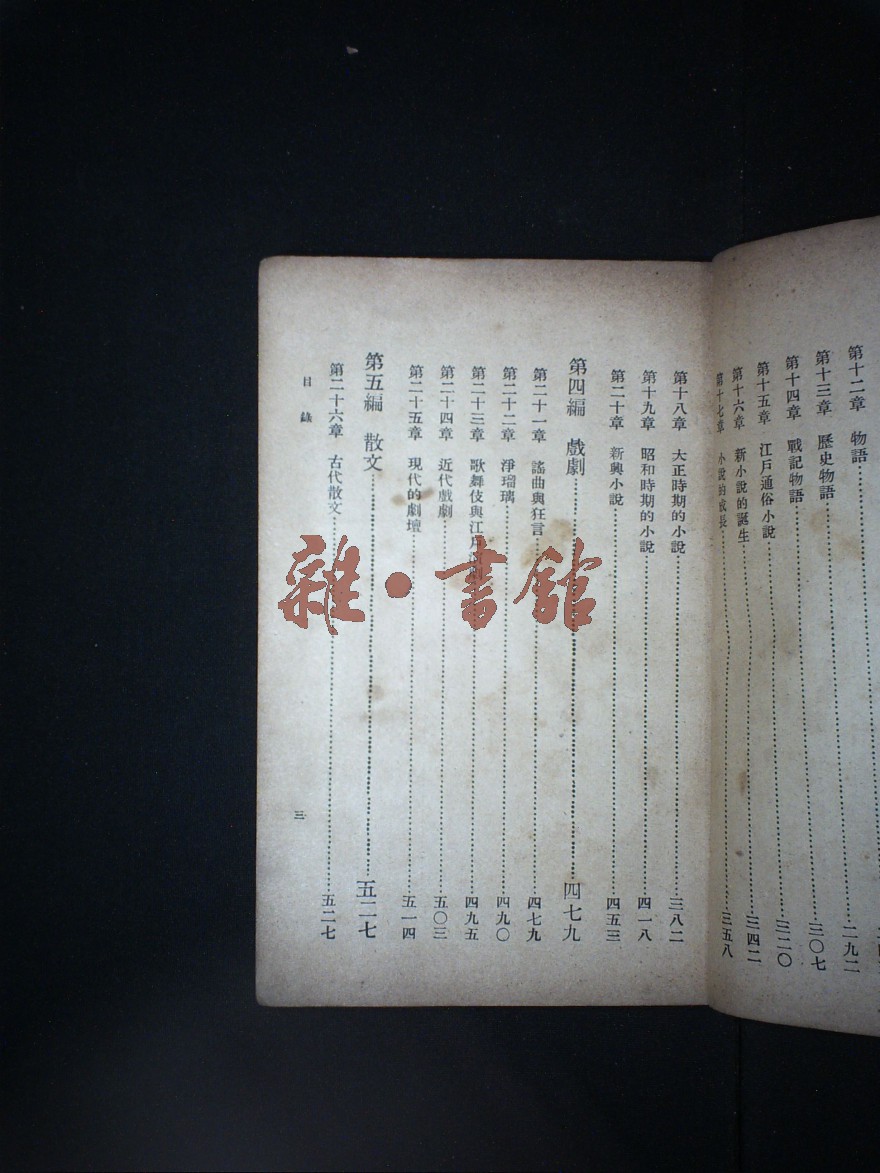 第十二章 物語 二九二
第十三章 歷史物語 三〇七
第十四章 戰記物語 三二〇
第十五章 江戶通俗小說
第十六章 新小說的誕生 三四二
第十七章 小說的成長 三五八
第十八章 大正時期的小說 三八二
第十九章 昭和時期的小說 四一八
第二十章 新興小說 四五三
第四編 戲劇 四七九
第二十一章 謠曲與狂言 四七九
第二十二章 淨瑠璃 四九〇
第二十三章 歌舞伎與江戶 四九五
第二十四章 近代戲劇 五〇三
第二十五章 現代的劇壇 五一四
第五編 散文 五二七
第二十六章 古代散文 五二七
目錄
三
雜·書館